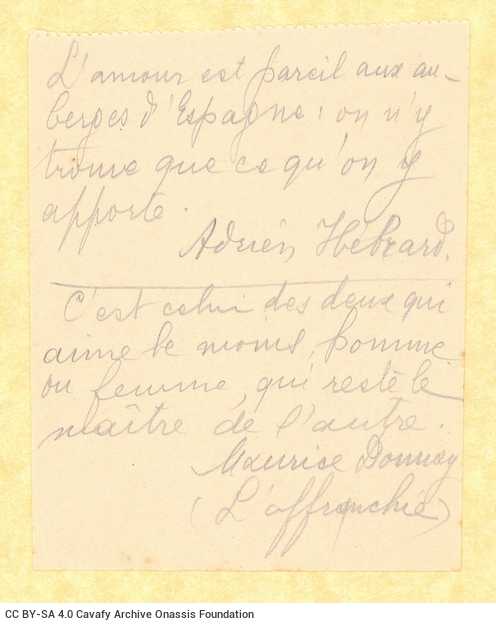 L'amour est pareil aux au-
berges d'Espagne: on n'y
trouve que ce qu'on y
apporte.
Adrien Hébrard.
C'est celui des deux qui
aime le moins, homme
ou femme, qui reste le
maître de l'autre.
Maurice Donnay
(L'affranchie)
CC BY-SA 4.0 Cavafy Archive Onassis Foundation